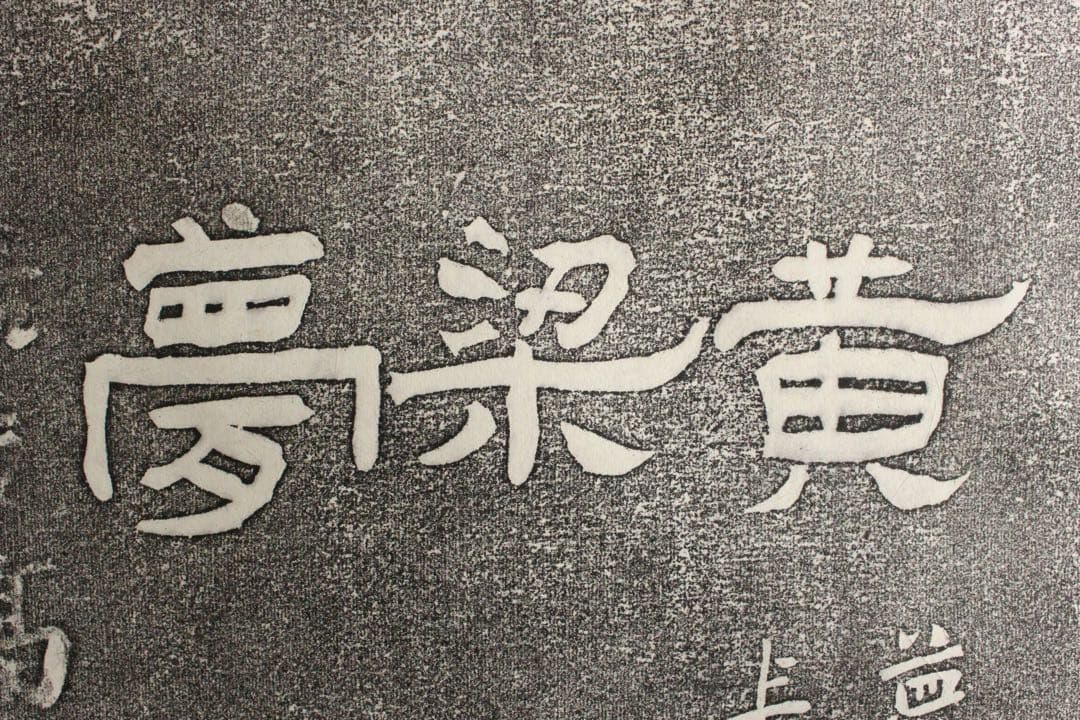 黄梁夢